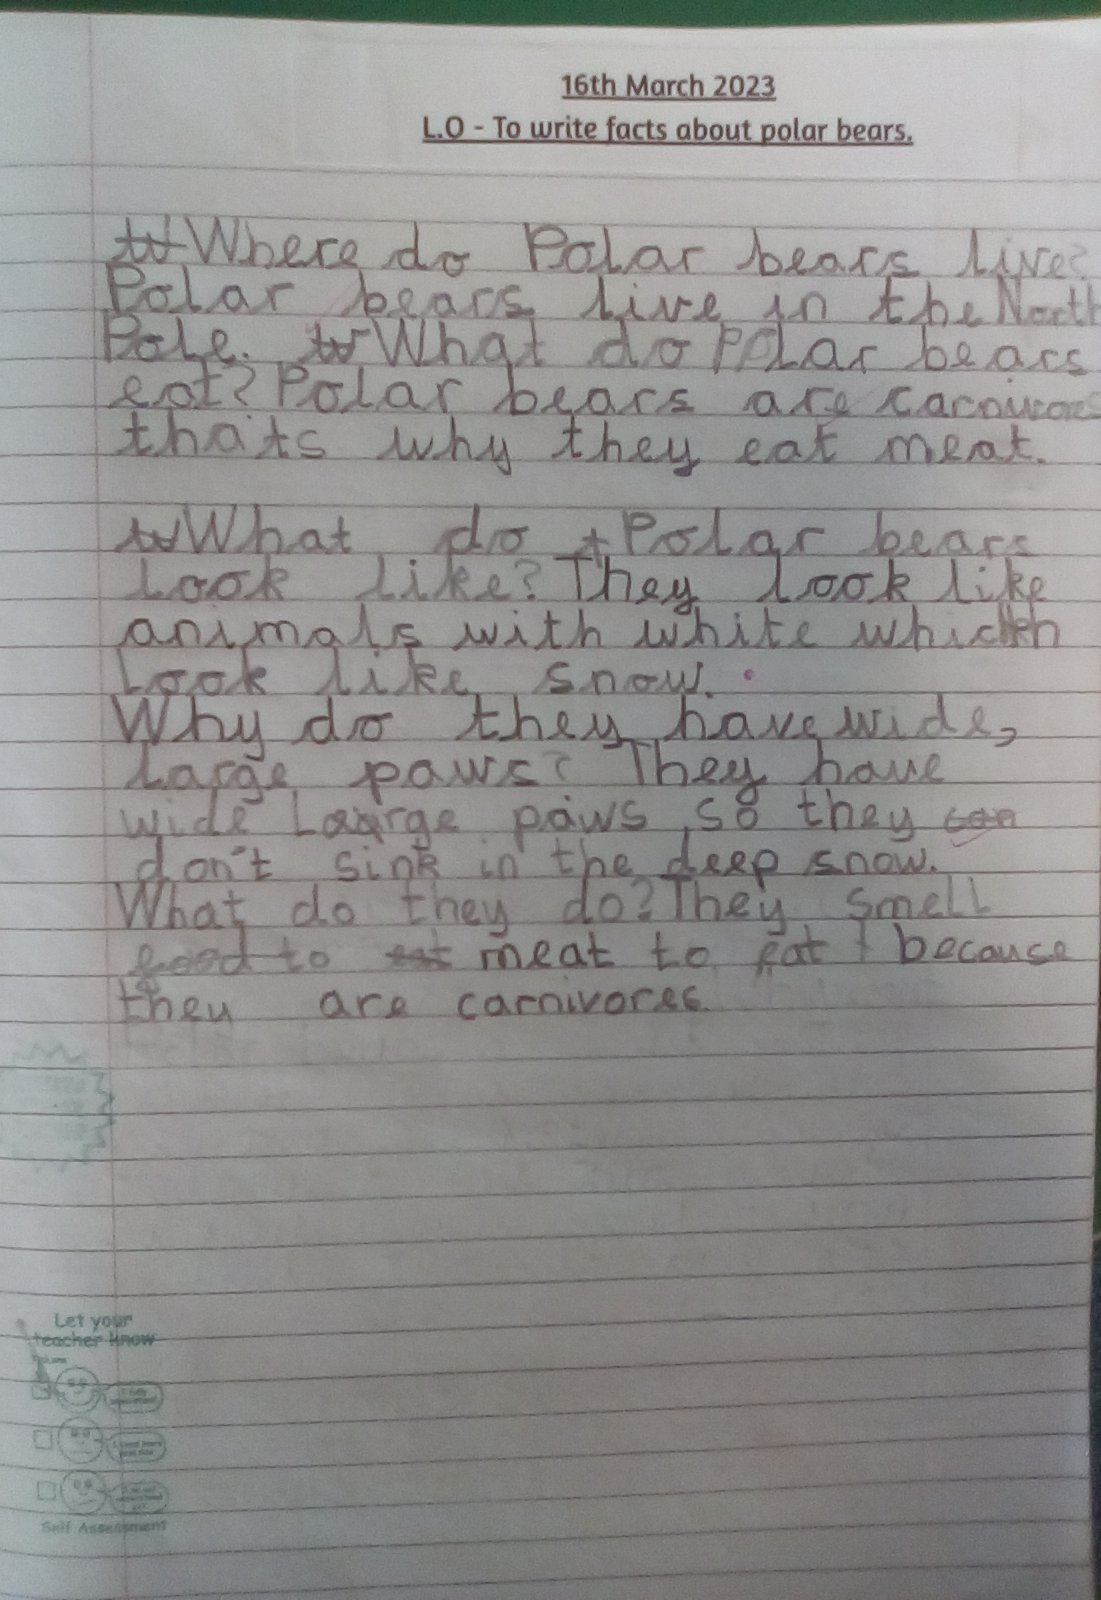 16th March 2023
L.O - To write facts about polar bears.
Where do Polar bears live?
Polar bears live in the North
Pole. What do Polar bears
eat? Polar bears are carnivores
thats why they eat meat.
What do Polar bears
look like? They look like
animals with white which
look like snow.
Why do they have wide,
large paws? They have
wide large paws so they
don't sink in the deep snow.
What do they do? They smell
food to eat meat to eat because
they are carnivores.
Let your
teacher know
Self Assessment